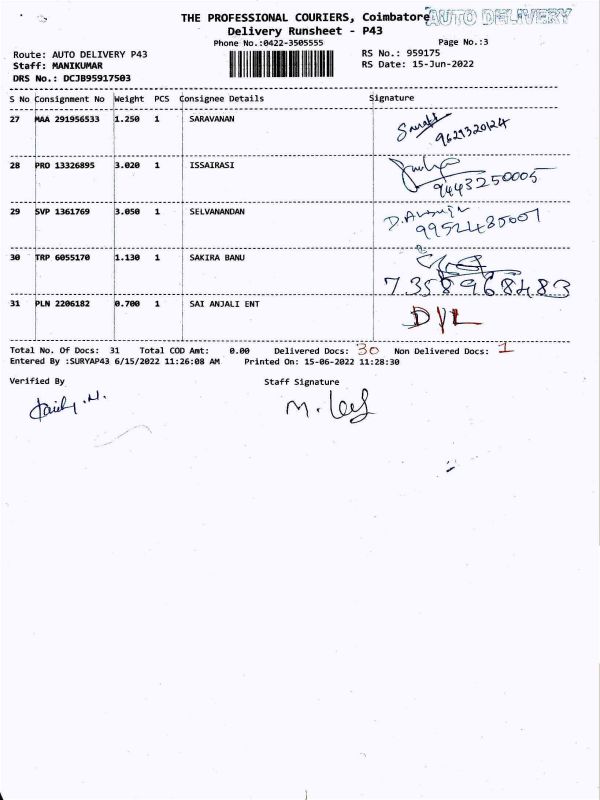 THE PROFESSIONAL COURIERS, Coimbatore AUTO DELIVERY
Delivery Runsheet - P43
Phone No.:0422-3505555 Page No.:3
Route: AUTO DELIVERY P43 RS No.: 959175
Staff: MANIKUMAR RS Date: 15-Jun-2022
DRS No.: DCJB95917503
S No Consignment No Weight PCS Consignee Details Signature
27 MAA 291956533 1.250 1 SARAVANAN
9629320124
28 PRO 13326895 3.020 1 ISSAIRASI
9443250005
29 SVP 1361769 3.050 1 SELVANANDAN
30 TRP 6055170 1.130 1 SAKIRA BANU
7358968483
31 PLN 2206182 0.700 1 SAI ANJALI ENT
Total No. Of Docs: 31 Total COD Amt: 0.00 Delivered Docs: 30 Non Delivered Docs: 1
Entered By :SURYAP43 6/15/2022 11:26:08 AM Printed On: 15-06-2022 11:28:30
Verified By Staff Signature